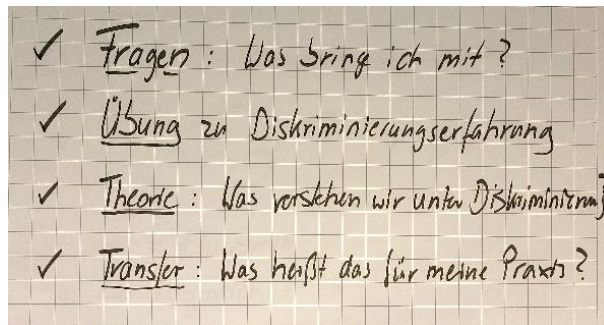 ✓ Fragen : Was bring ich mit ?
✓ Übung zu Diskriminierungserfahrung
✓ Theorie : Was verstehen wir unter Diskriminierung
✓ Transfer : Was heißt das für meine Praxis ?